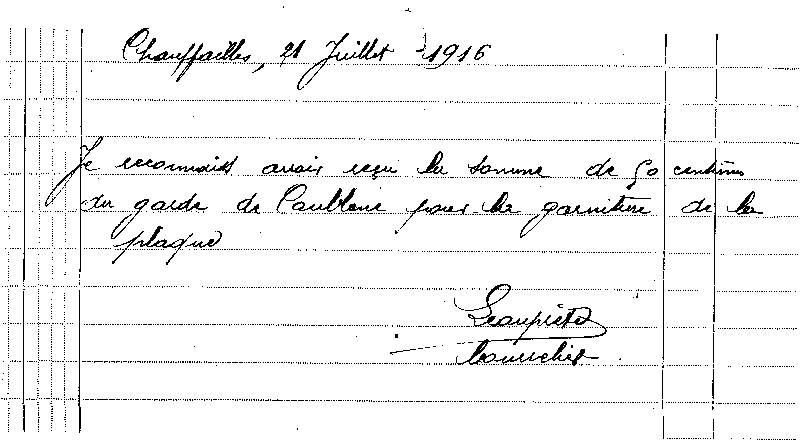 Chauffailles, 21 Juillet 1916
Je reconnais avoir reçu la somme de 50 centimes
du garde de pour la garniture de la
plaque